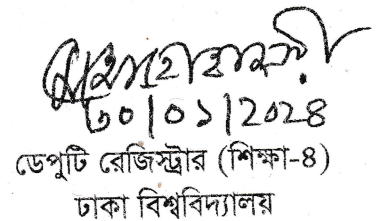 ৩০|০১|2024
ডেপুটি রেজিস্ট্রার (শিক্ষা-৪)
ঢাকা বিশ্ববিদ্যালয়